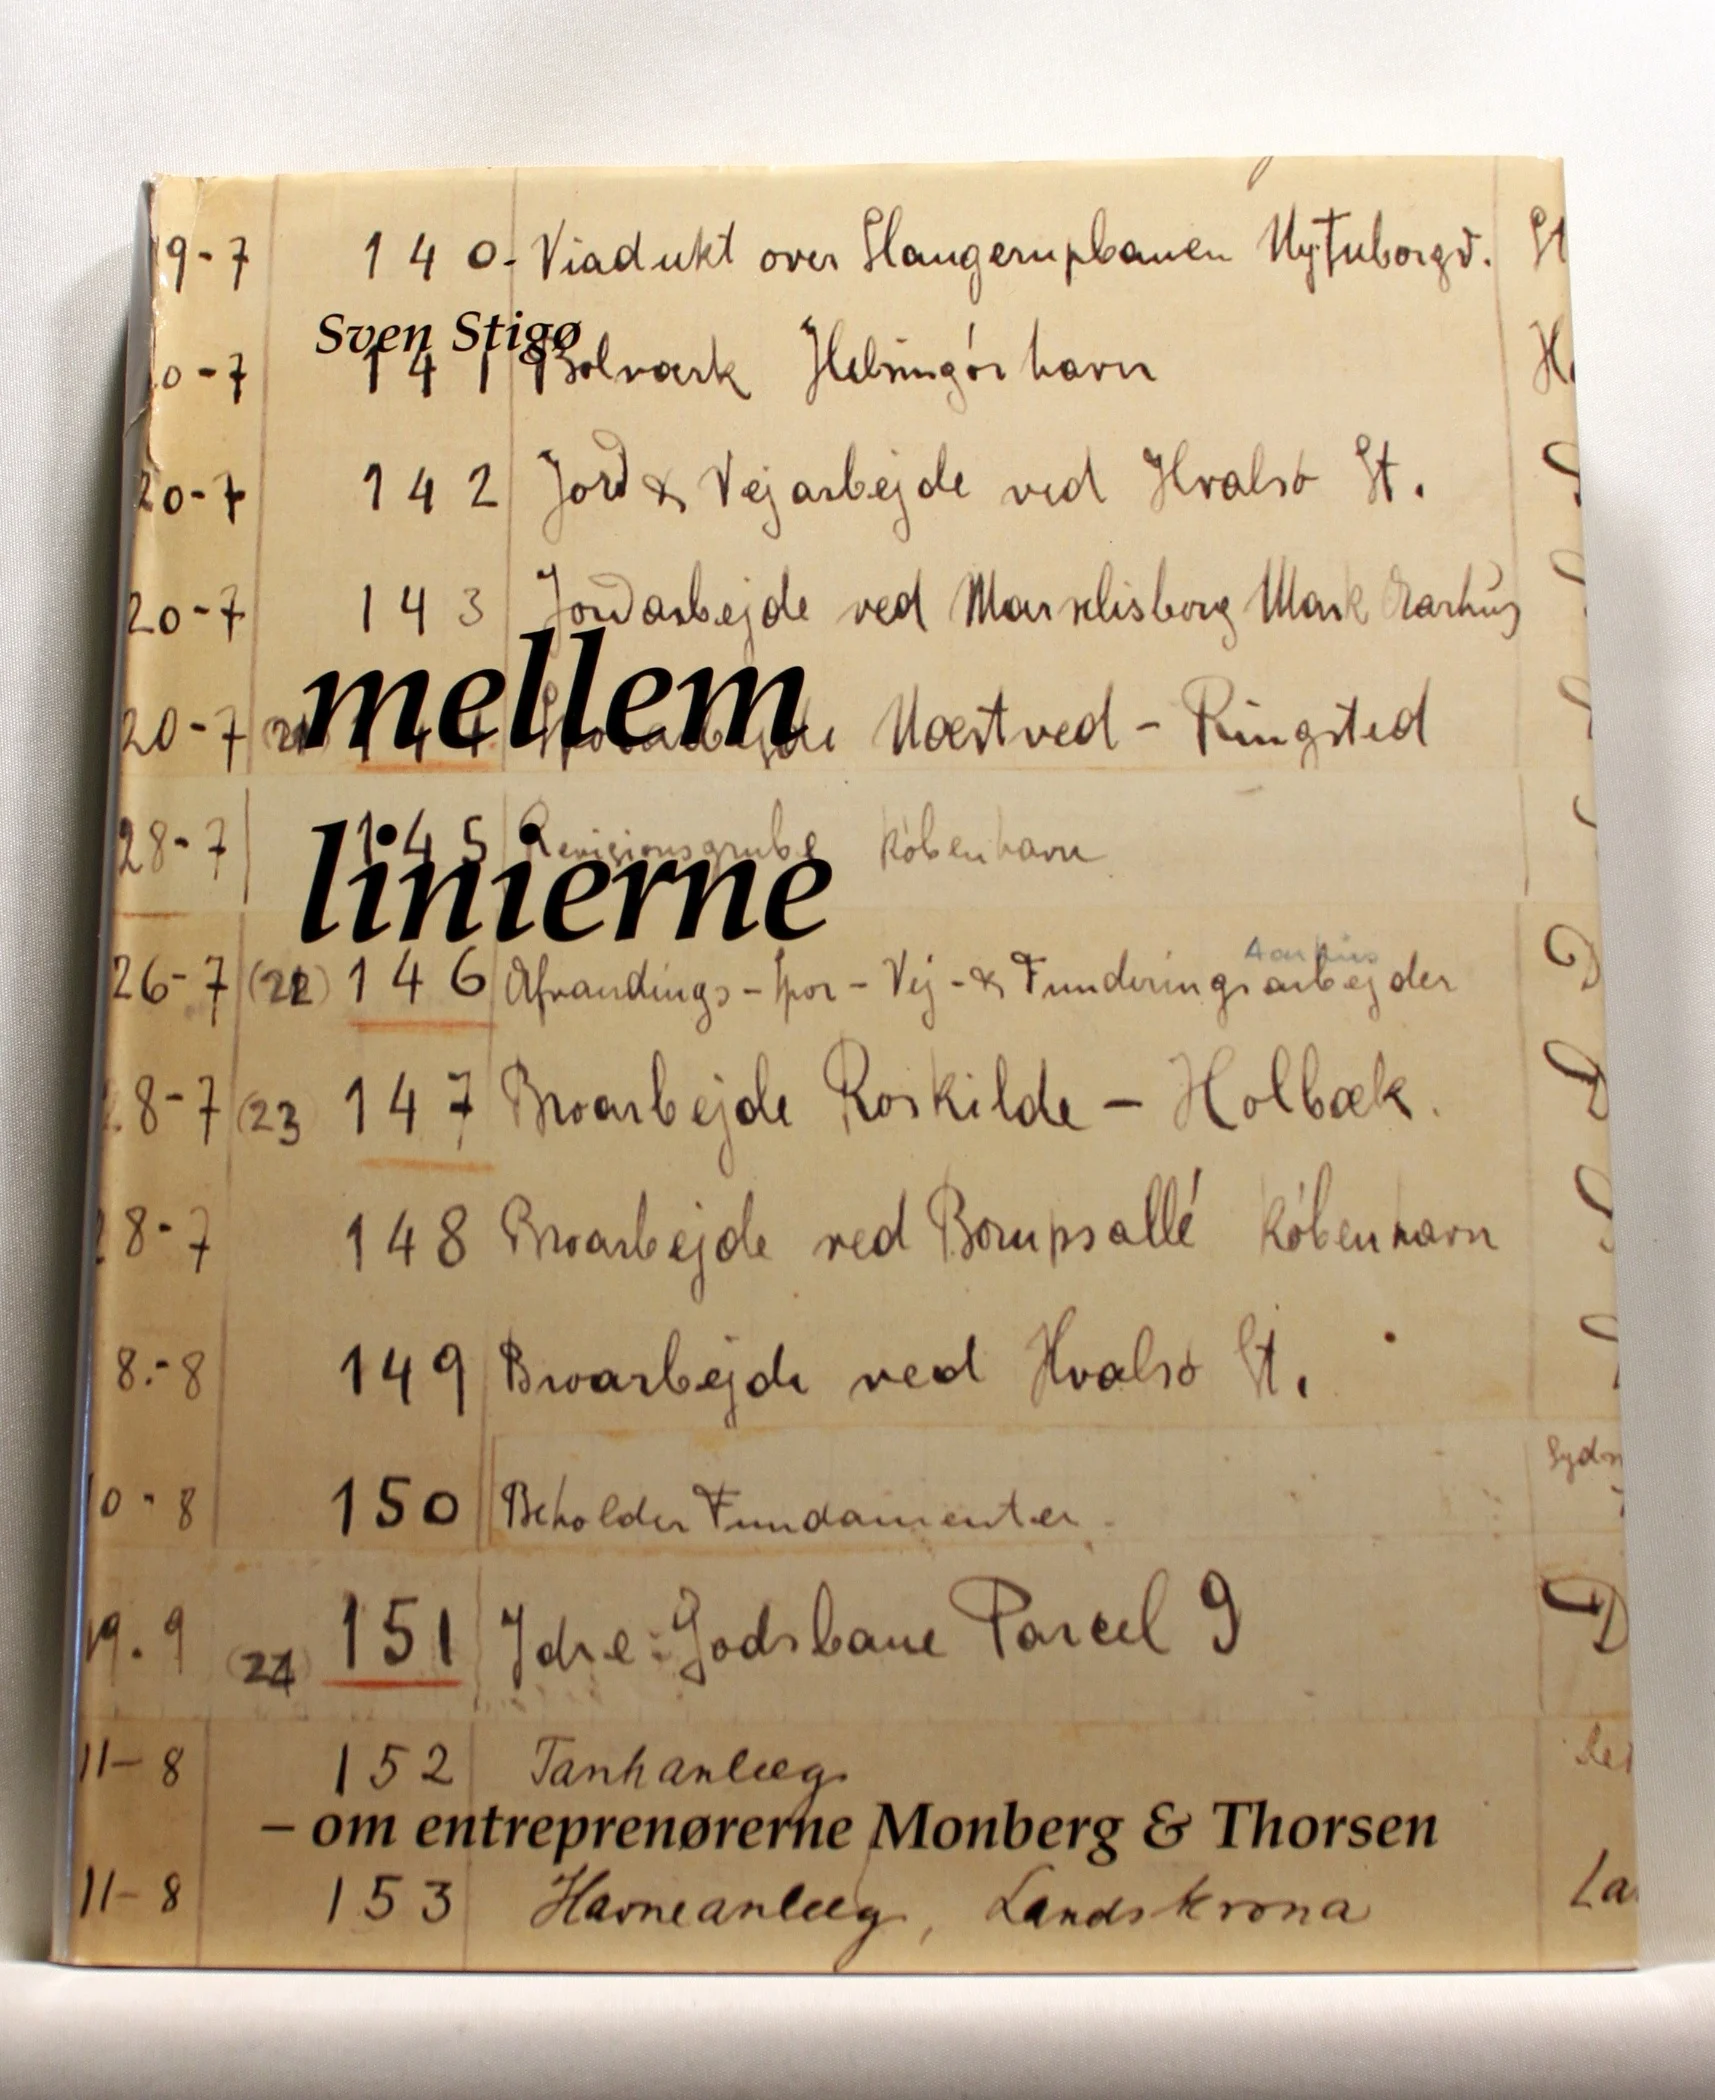 19-7 140- Viadukt over Slangerupbanen Nytuborgv. St
Sven Stigø
0-7 141 Bolværk Helsingör havn H
20-7 142 Jord & Vejarbejde ved Hvalsö St.
20-7 143 Jordarbejde ved Marselisborg Mark Aarhus
20-7 144 Næstved - Ringsted
mellem
28-7 145 Revisionsgrube Köbenhavn
linierne
Aarhus
26-7 (22) 146 Afvandings-Spor-Vej-& Funderingsarbejder D
28-7 (23 147 Broarbejde Roskilde - Holbæk. D
28-7 148 Broarbejde ved Borupsallé Köbenhavn
8.-8 149 Broarbejde ved Hvalsö St.
10-8 150 Beholder Fundamenter.
19.9 (24) 151 Ydre: Godsbane Parcel 9 D
11-8 152 Tankanlæg
– om entreprenørerne Monberg & Thorsen
11-8 153 Havneanlæg, Landskrona La